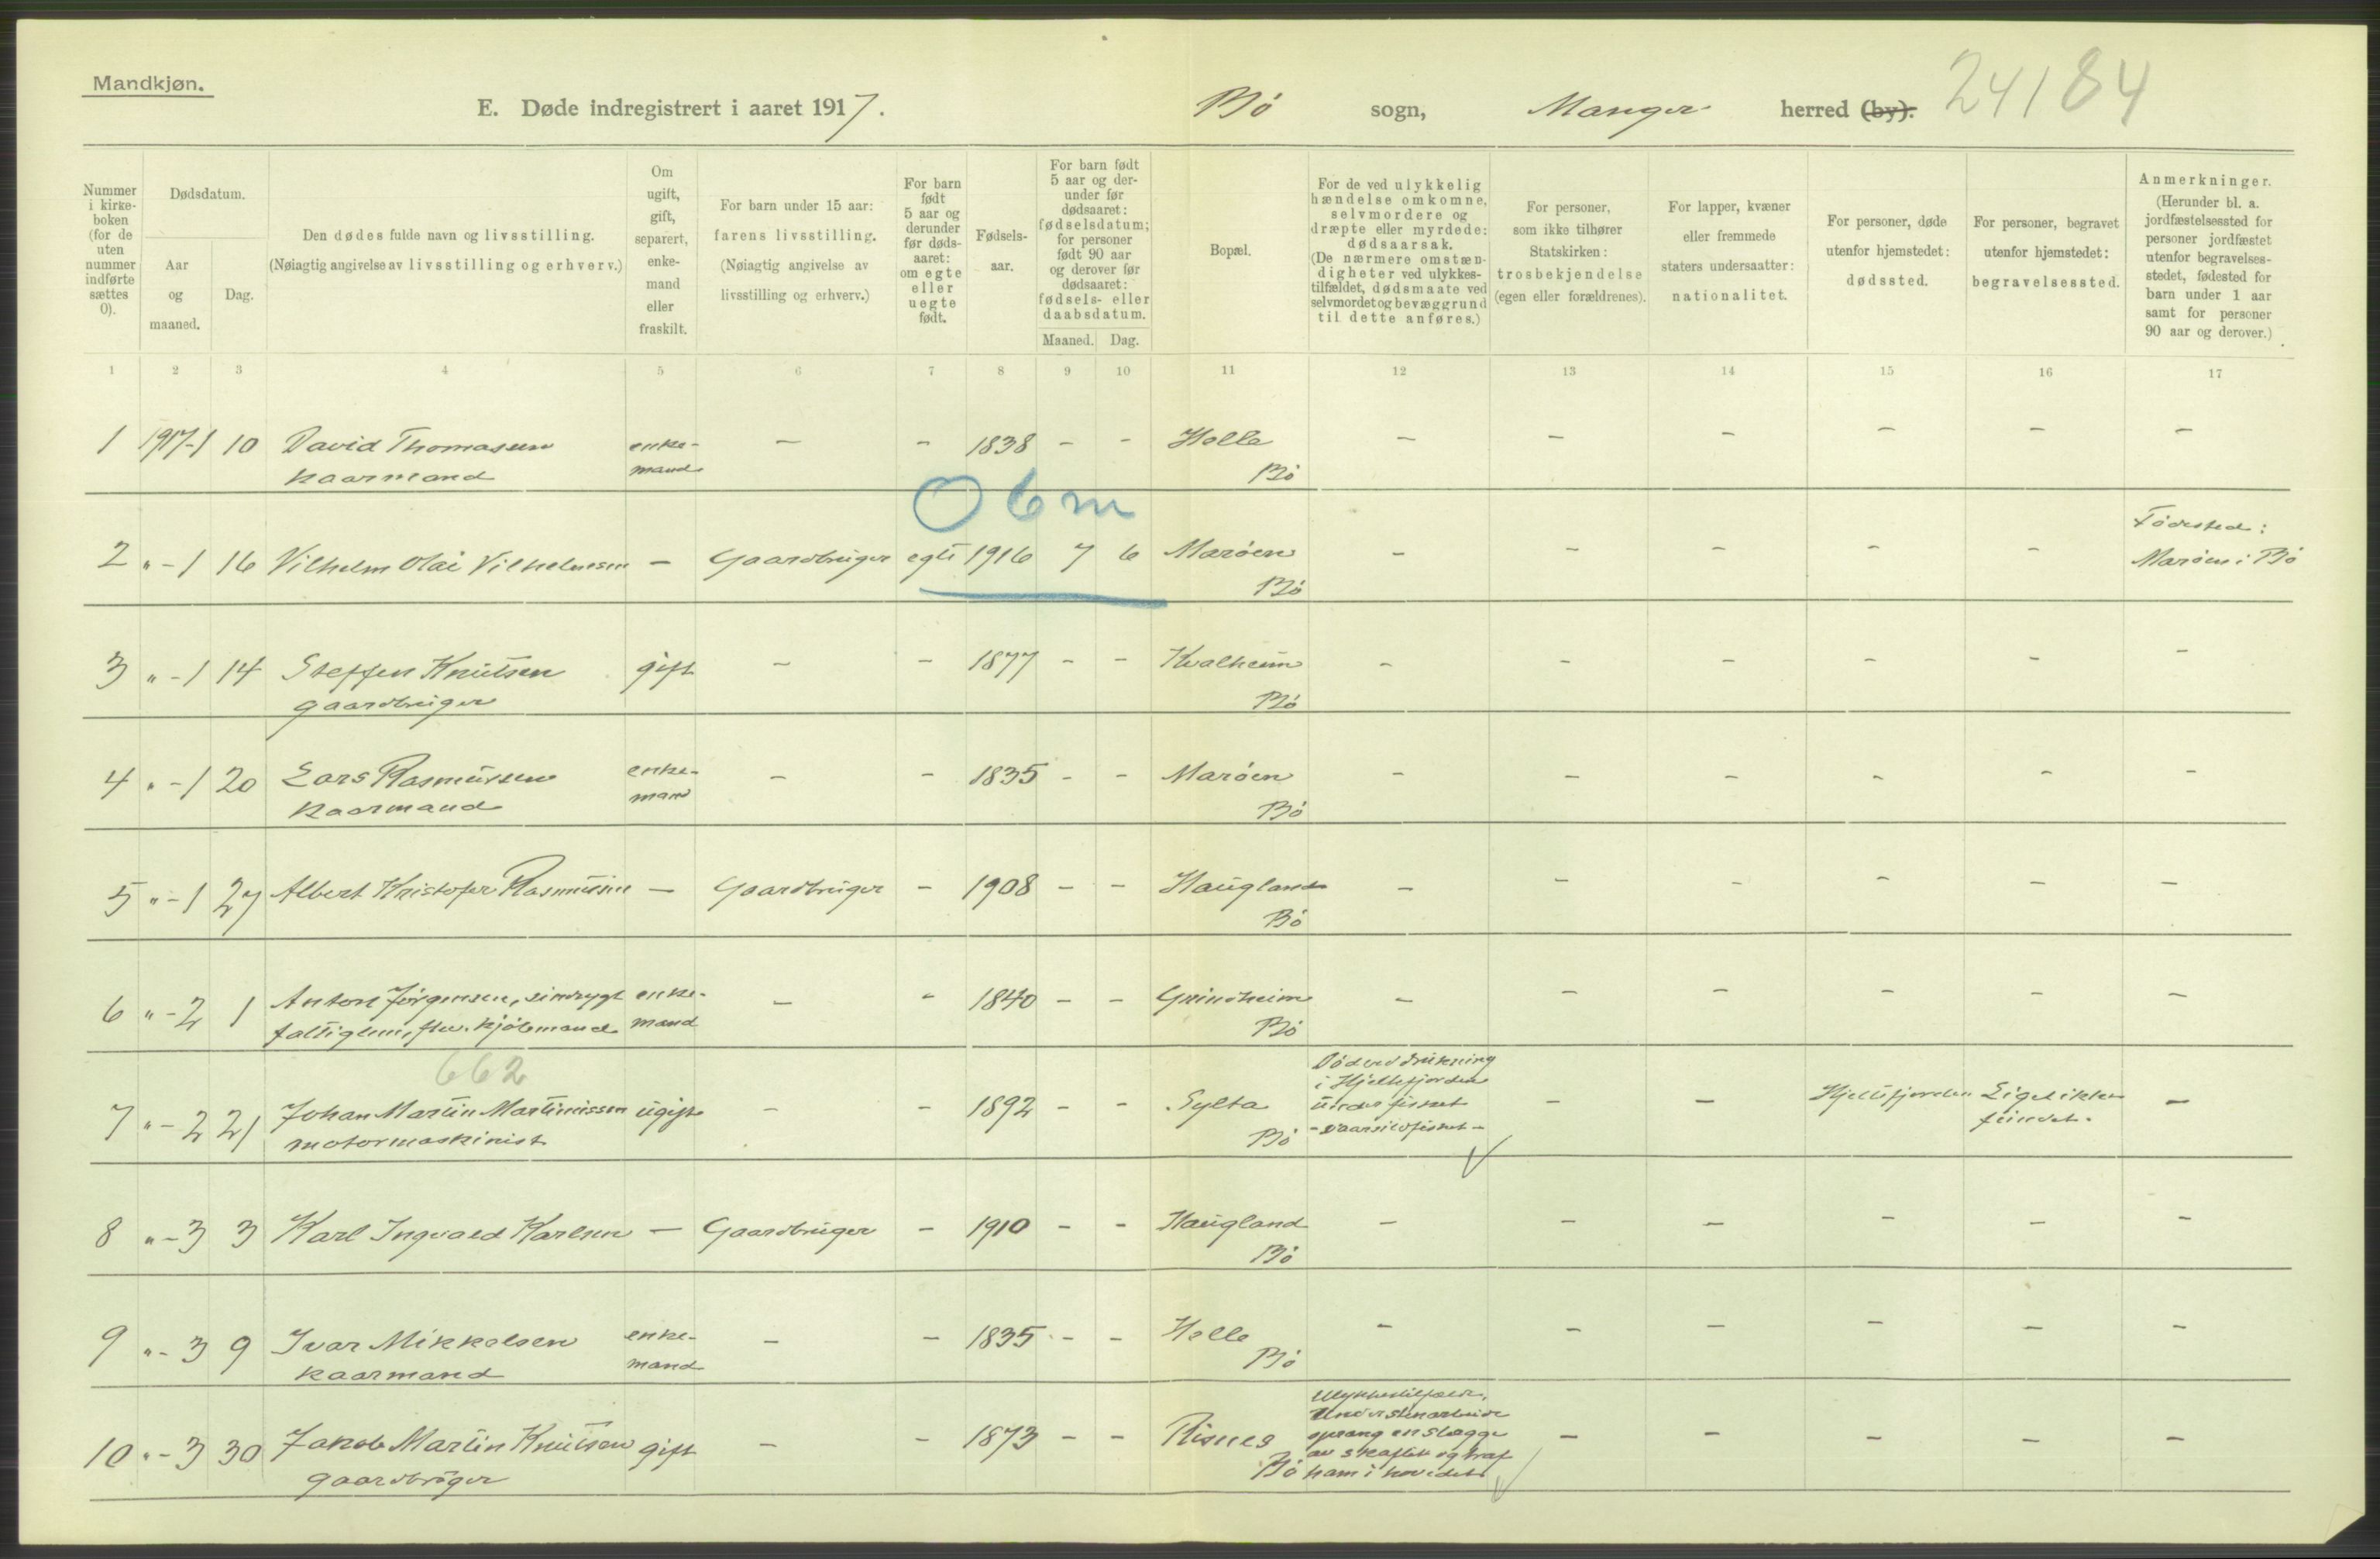 Mandkjøn.
E. Døde indregistrert i aaret 1917.
Bø sogn, Manger herred (by). 24184
Nummer i kirkeboken (for de uten nummer indførte sættes 0).
Dødsdatum.
Aar og maaned.
Dag.
Den dødes fulde navn og livsstilling.
(Nøiagtig angivelse av livsstilling og erhverv.)
Om ugift, gift, separert, enkemand eller fraskilt.
For barn under 15 aar:
farens livsstilling.
(Nøiagtig angivelse av livsstilling og erhverv.)
For barn født 5 aar og derunder før dødsaaret: om egte eller uegte født.
Fødselsaar.
For barn født 5 aar og derunder før dødsaaret: fødselsdatum; for personer født 90 aar og derover før dødsaaret: fødsels- eller daabsdatum.
Maaned. Dag.
Bopæl.
For de ved ulykkelig hændelse omkomne, selvmordere og dræpte eller myrdede: dødsaarsak. (De nærmere omstændigheter ved ulykkestilfældet, dødsmaate ved selvmordet og bevæggrund til dette anføres.)
For personer, som ikke tilhører Statskirken: trosbekjendelse (egen eller forældrenes).
For lapper, kvæner eller fremmede staters undersaatter: nationalitet.
For personer, døde utenfor hjemstedet: dødssted.
For personer, begravet utenfor hjemstedet: begravelsessted.
Anmerkninger. (Herunder bl. a. jordfæstelsessted for personer jordfæstet utenfor begravelsesstedet, fødested for barn under 1 aar samt for personer 90 aar og derover.)
1 2 3 4 5 6 7 8 9 10 11 12 13 14 15 16 17
1 1917-1 10 David Thomassen enke- — - 1838 - - Helle - - - - - -
kaarmand mand Bø
0 6 m
2 " - 1 16 Vilhelm Olai Vilhelmsen — Gaardbruger egte 1916 7 6 Marøen - - - - - Fødested:
Bø Marøen i Bø
3 " - 1 14 Steffen Knutsen gift - - 1877 - - Kvalheim - - - - - -
gaardbruger Bø
4 " - 1 20 Lars Rasmussen enke- - - 1835 - - Marøen - - - - - -
kaarmand mand Bø
5 " - 1 27 Albert Kristofer Rasmussen — Gaardbruger - 1908 - - Haugland - - - - - -
Bø
6 " - 2 1 Anton Jørgensen, sindsygt enke- - - 1840 - - Grindheim - - - - - -
fattiglem, fhv. kjøbmand mand Bø
662
7 " - 2 21 Johan Martin Martinissen ugift - - 1892 - - Sylta Død ved drukning - - Hjeltefjorden Liget ikke -
motormaskinist Bø i Hjeltefjorden fundet.
under fisket
- vaarsildfisket -
8 " - 3 3 Karl Ingvald Karlsen — Gaardbruger - 1910 - - Haugland - - - - - -
Bø
9 " - 3 9 Ivar Mikkelsen enke- - - 1835 - - Helle - - - - - -
kaarmand mand Bø
10 " - 3 30 Jakob Martin Knutsen gift - - 1873 - - Risnes Ulykkestilfælde. - - - - -
gaardbruger Bø Under stenarbeide
sprang en slægge
av skaftet og traf
ham i hovedet